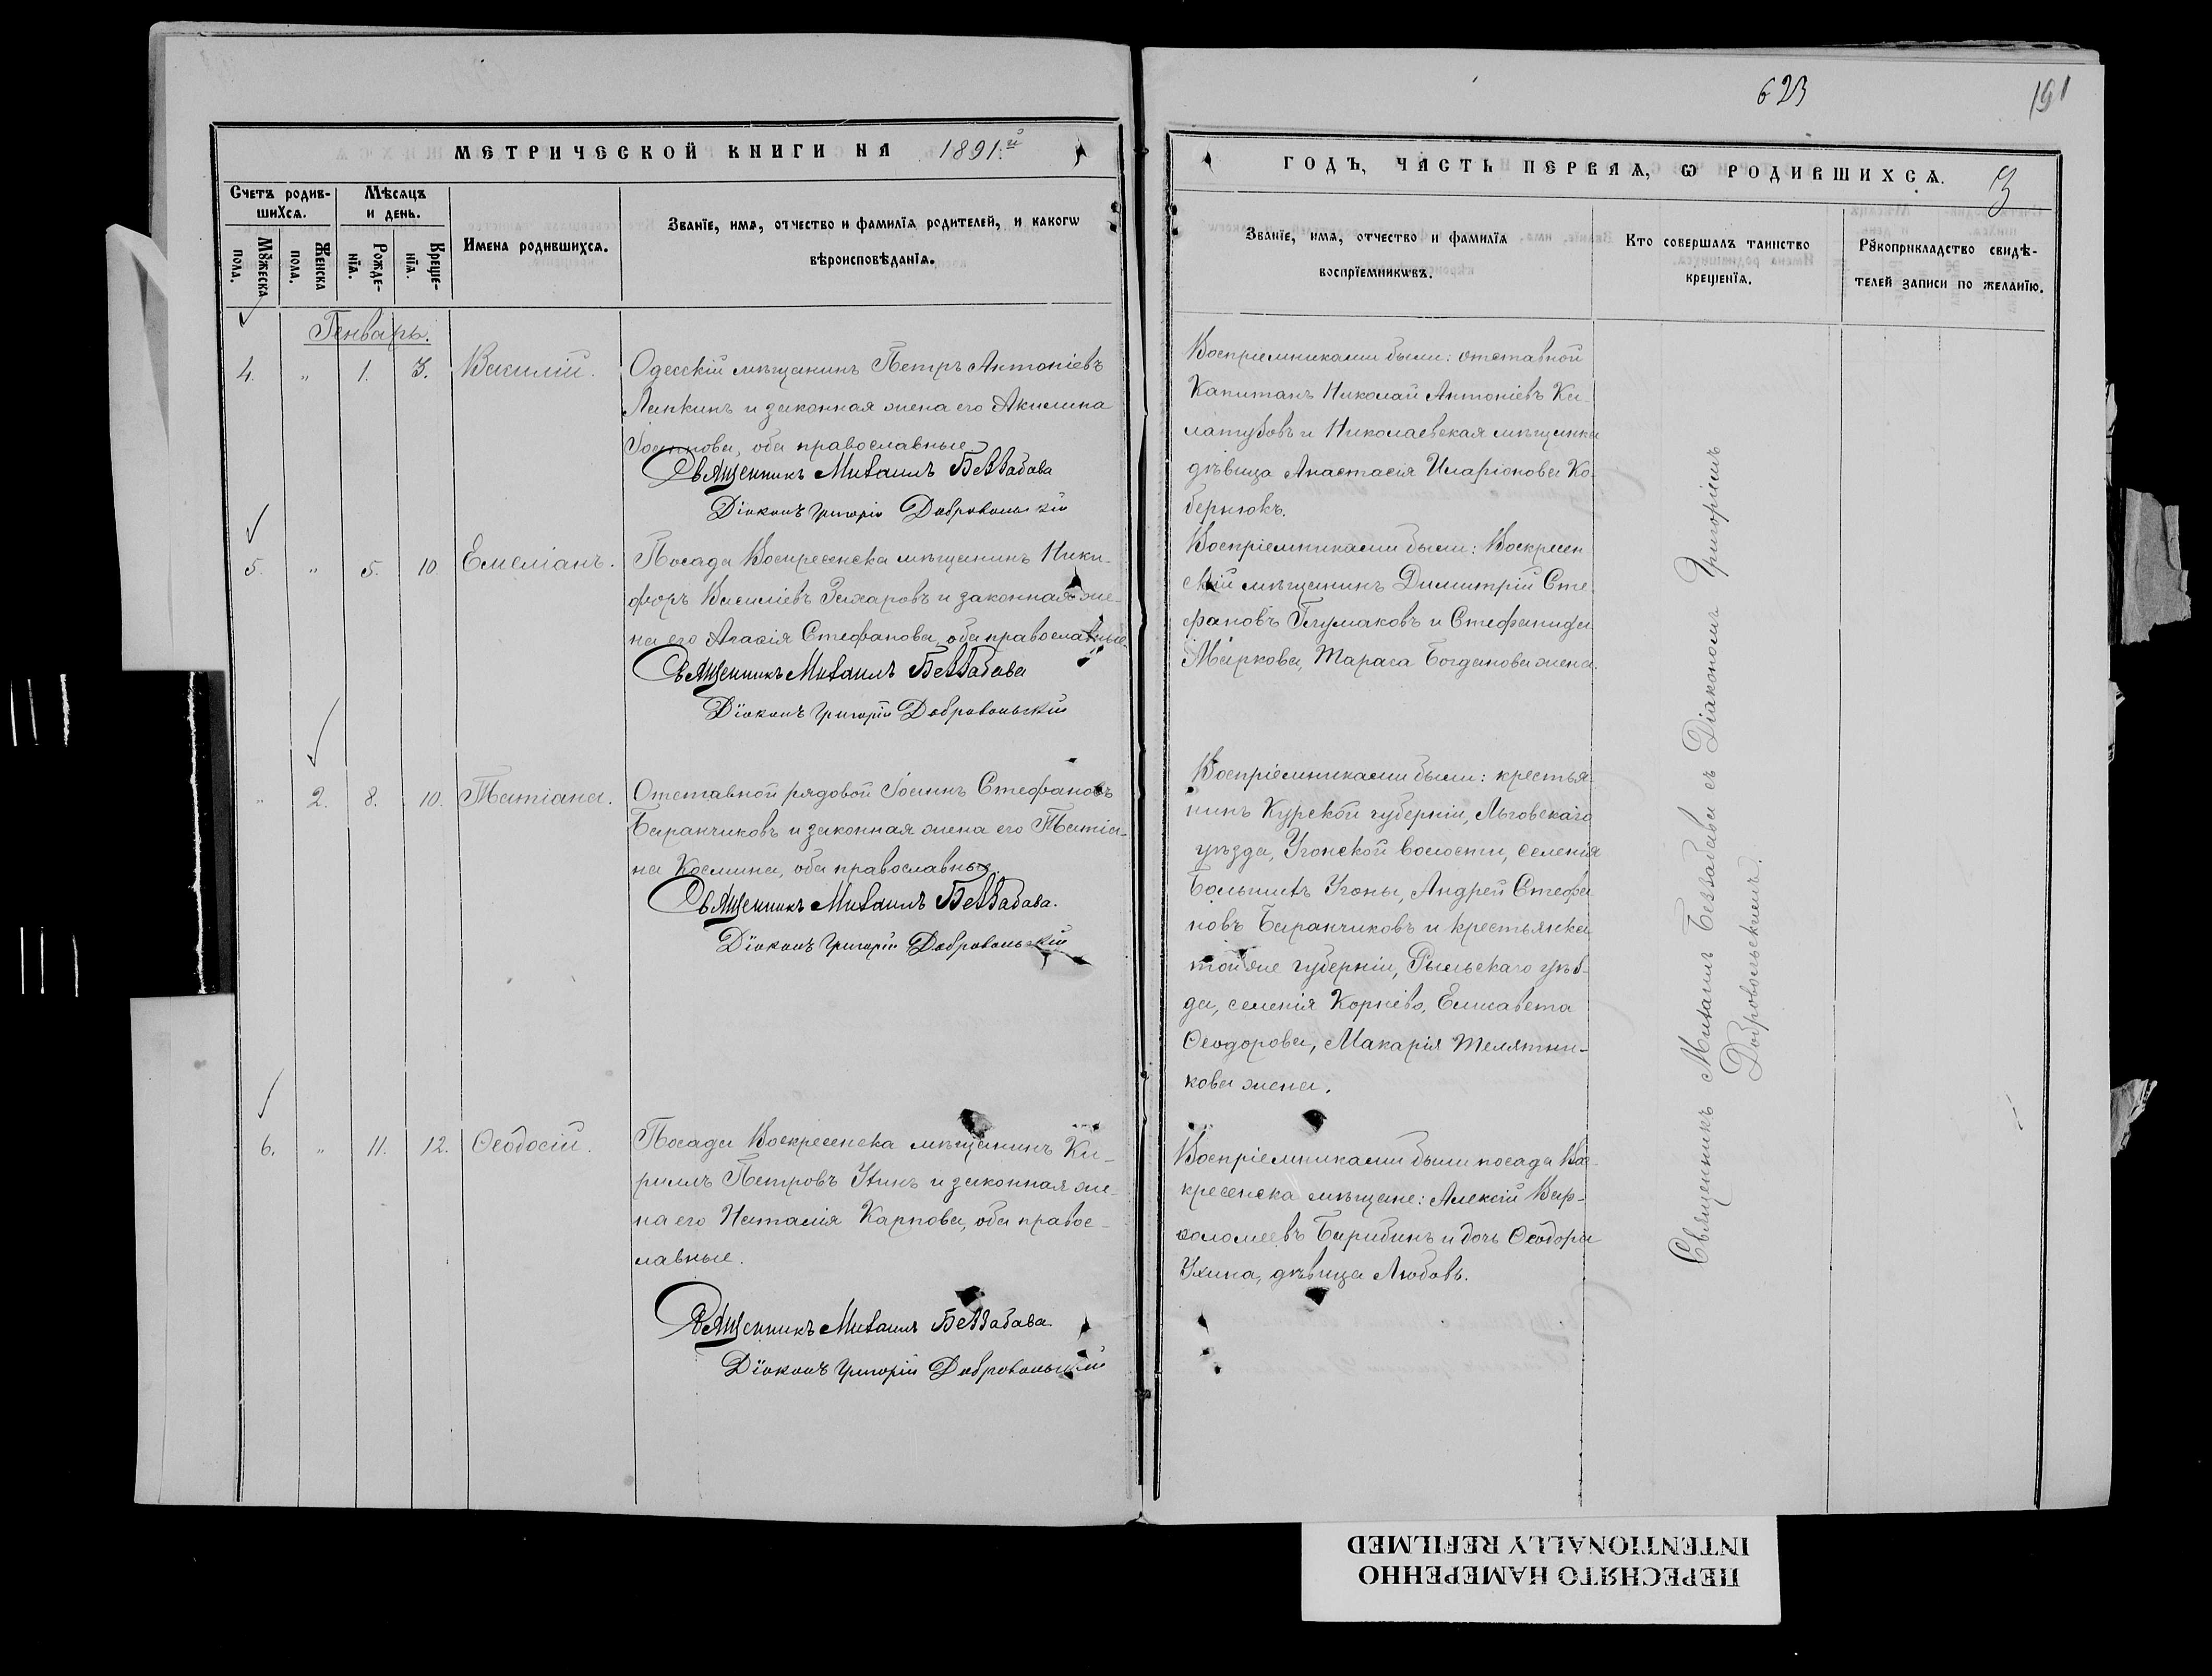 623
191
МЕТРИЧЕСКОЙ КНИГИ НА 1891й
ГОДЪ, ЧАСТЬ ПЕРВАЯ, Ѡ РОДИВШИХСѦ.
3
Счетъ родив-
шихсѧ.
Мѣсѧцъ
и день.
Мꙋжеска
пола.
Женска
пола.
Рожде-
нїѧ.
Креще-
нїѧ.
Имена родившихсѧ.
Званїе, имѧ, отчество и фамилїѧ родителей, и какогѡ
вѣроисповѣданїѧ.
Званїе, имѧ, отчество и фамилїѧ
воспрїемникѡвъ.
Кто совершалъ таинство
крещенїѧ.
Рꙋкоприкладство свидѣ-
телей записи по желанїю.
Генварь.
4. „ 1. 3. Василій.
Одесскій мѣщанинъ Петръ Антоніевъ
Лапкинъ и законная жена его Акилина
Іоаннова, оба православные
Священникъ Михаилъ Беззабава
Діаконъ Григорій Добровольскій
Воспріемниками были: отставной
Капитанъ Николай Антоніевъ Ка-
латубовъ и Николаевская мѣщанка
дѣвица Анастасія Иларіонова Ко-
бернюкъ.
5. „ 5. 10 Емеліанъ.
Посада Воскресенска мѣщанинъ Ники-
форъ Василіевъ Захаровъ и законная же-
на его Агаѳія Стефанова, оба православные.
Священникъ Михаилъ Беззабава
Діаконъ Григорій Добровольскій
Воспріемниками были: Воскресен
скій мѣщанинъ Димитрій Сте
фановъ Глумаковъ и Стефанида
Маркова, Тараса Богданова жена.
„ 2. 8. 10. Татіана.
Отставной рядовой Іоаннъ Стефановъ
Баранчиковъ и законная жена его Татіа-
на Космина, оба православные.
Священникъ Михаилъ Беззабава.
Діаконъ Григорій Добровольскій
Воспріемниками были: крестья-
нинъ Курской губерніи, Льговскаго
уѣзда, Угонской волости, селенія
Большихъ Угоны, Андрей Стефа
новъ Баранчиковъ и крестьянка
той же губерніи, Рыльскаго уѣз-
да, селенія Корнево, Елисавета
Ѳеодорова, Макарія Телятни-
кова жена.
6. „ 11. 12. Ѳеодосій.
Посада Воскресенска мѣщанинъ Ки-
риллъ Петровъ Ухинъ и законная же-
на его Наталія Карпова, оба правос-
лавные.
Священникъ Михаилъ Беззабава
Діаконъ Григорій Добровольскій
Воспріемниками были посада Вос-
кресенска мѣщане: Алексій Вар-
ѳоломеевъ Барибинъ и дочь Ѳеодора
Ухина, дѣвица Любовь.
Священникъ Михаилъ Беззабава съ Діакономъ Григоріемъ
Добровольскимъ.
ПЕРЕСНЯТО НАМЕРЕННО
INTENTIONALLY REFILMED